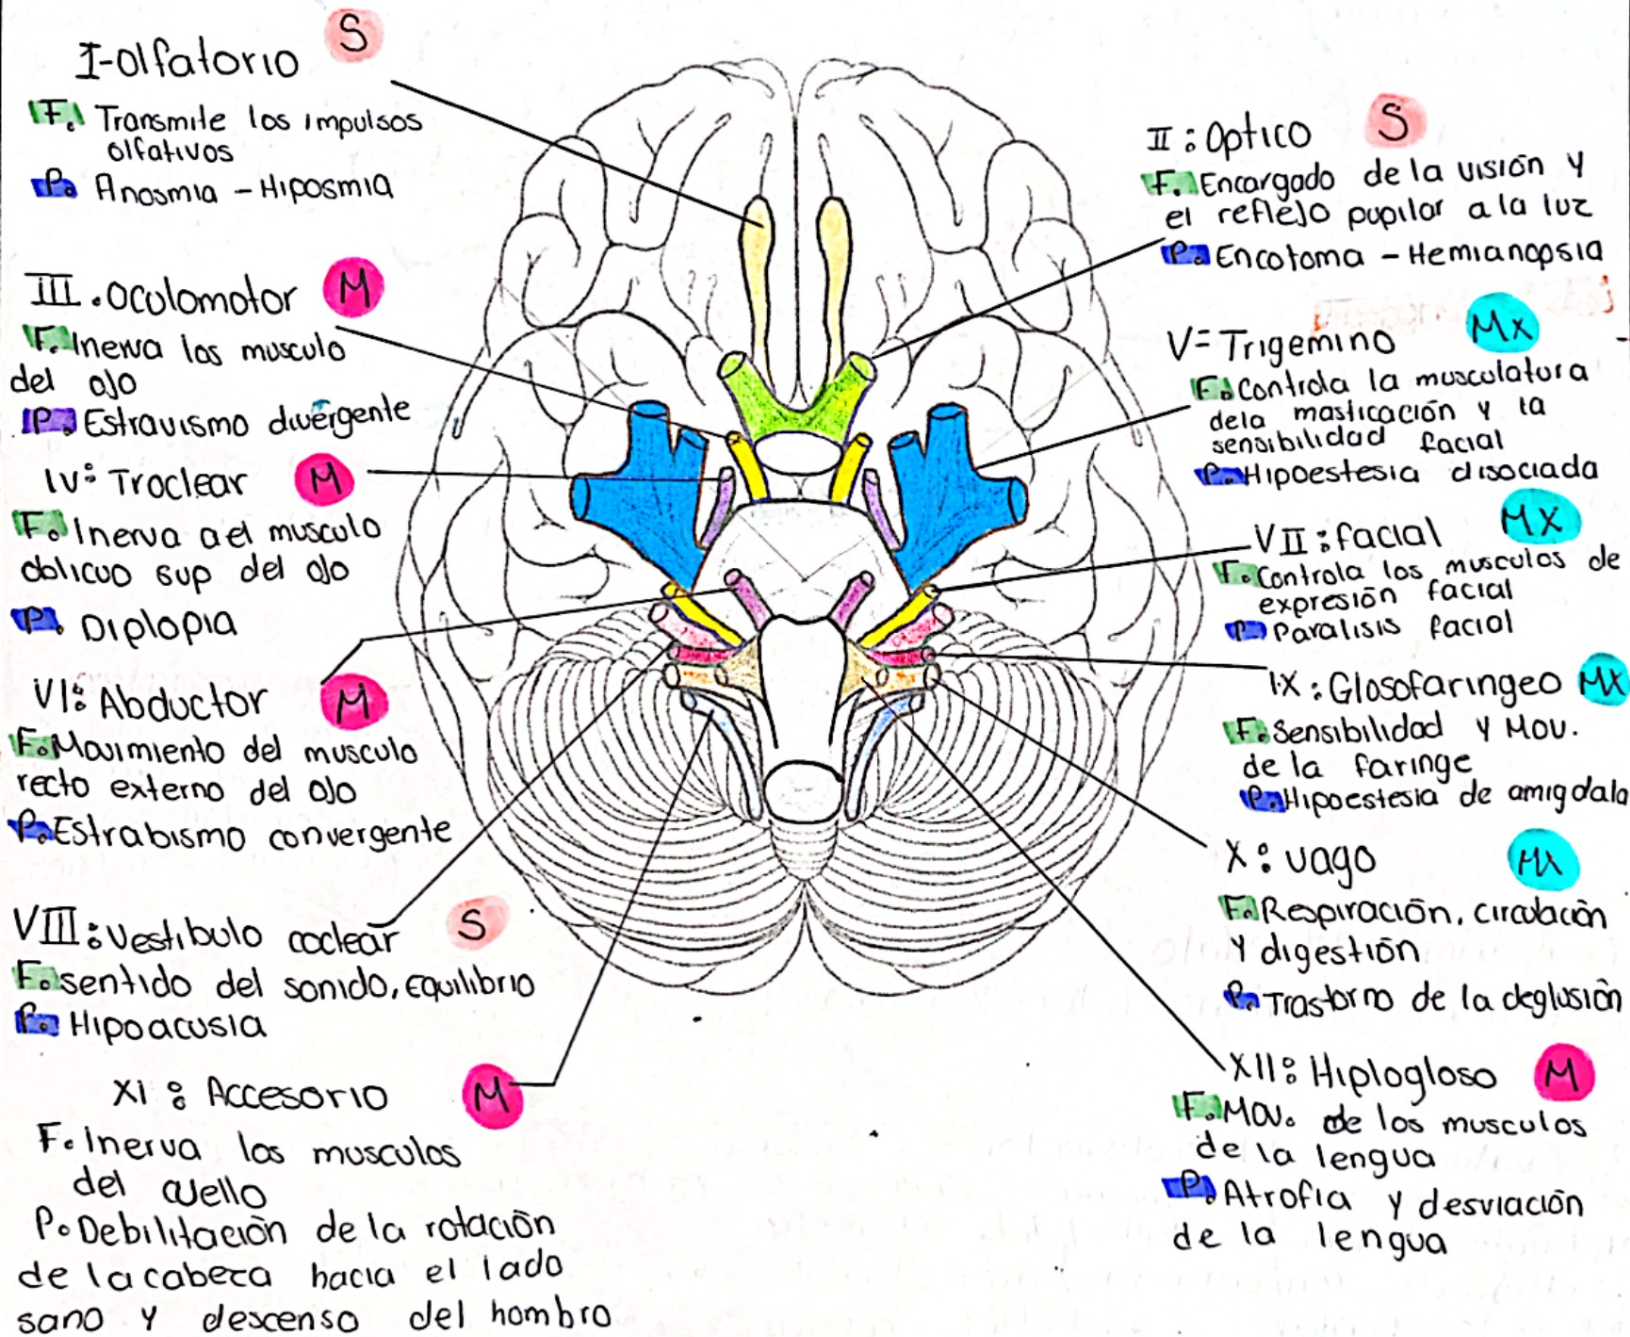 I-Olfatorio S
F. Transmite los impulsos
olfativos
P. Anosmia - Hiposmia
III. Oculomotor M
F. Inerva los musculo
del ojo
P. Estravismo divergente
IV: Troclear M
F. Inerva ael musculo
oblicuo sup del ojo
P. Diplopia
VI: Abductor M
F. Movimiento del musculo
recto externo del ojo
P. Estrabismo convergente
VIII: Vestibulo coclear S
F. sentido del sonido, Equilibrio
P. Hipoacusia
XI: Accesorio M
F. Inerva los musculos
del cuello
P. Debilitación de la rotación
de la cabeza hacia el lado
sano y descenso del hombro
II: Optico S
F. Encargado de la visión y
el reflejo pupilar a la luz
P. Encotoma - Hemianopsia
V= Trigemino Mx
F. Controla la musculatura
dela masticación y la
sensibilidad facial
P. Hipoestesia disociada
VII: facial MX
F. Controla los musculos de
expresión facial
P. Paralisis facial
IX: Glosofaringeo MX
F. Sensibilidad y Mov.
de la faringe
P. Hipoestesia de amigdala
X: vago MX
F. Respiración, circulación
Y digestión
P. Trastorno de la deglusión
XII: Hiplogloso M
F. Mov. de los musculos
de la lengua
P. Atrofia y desviación
de la lengua